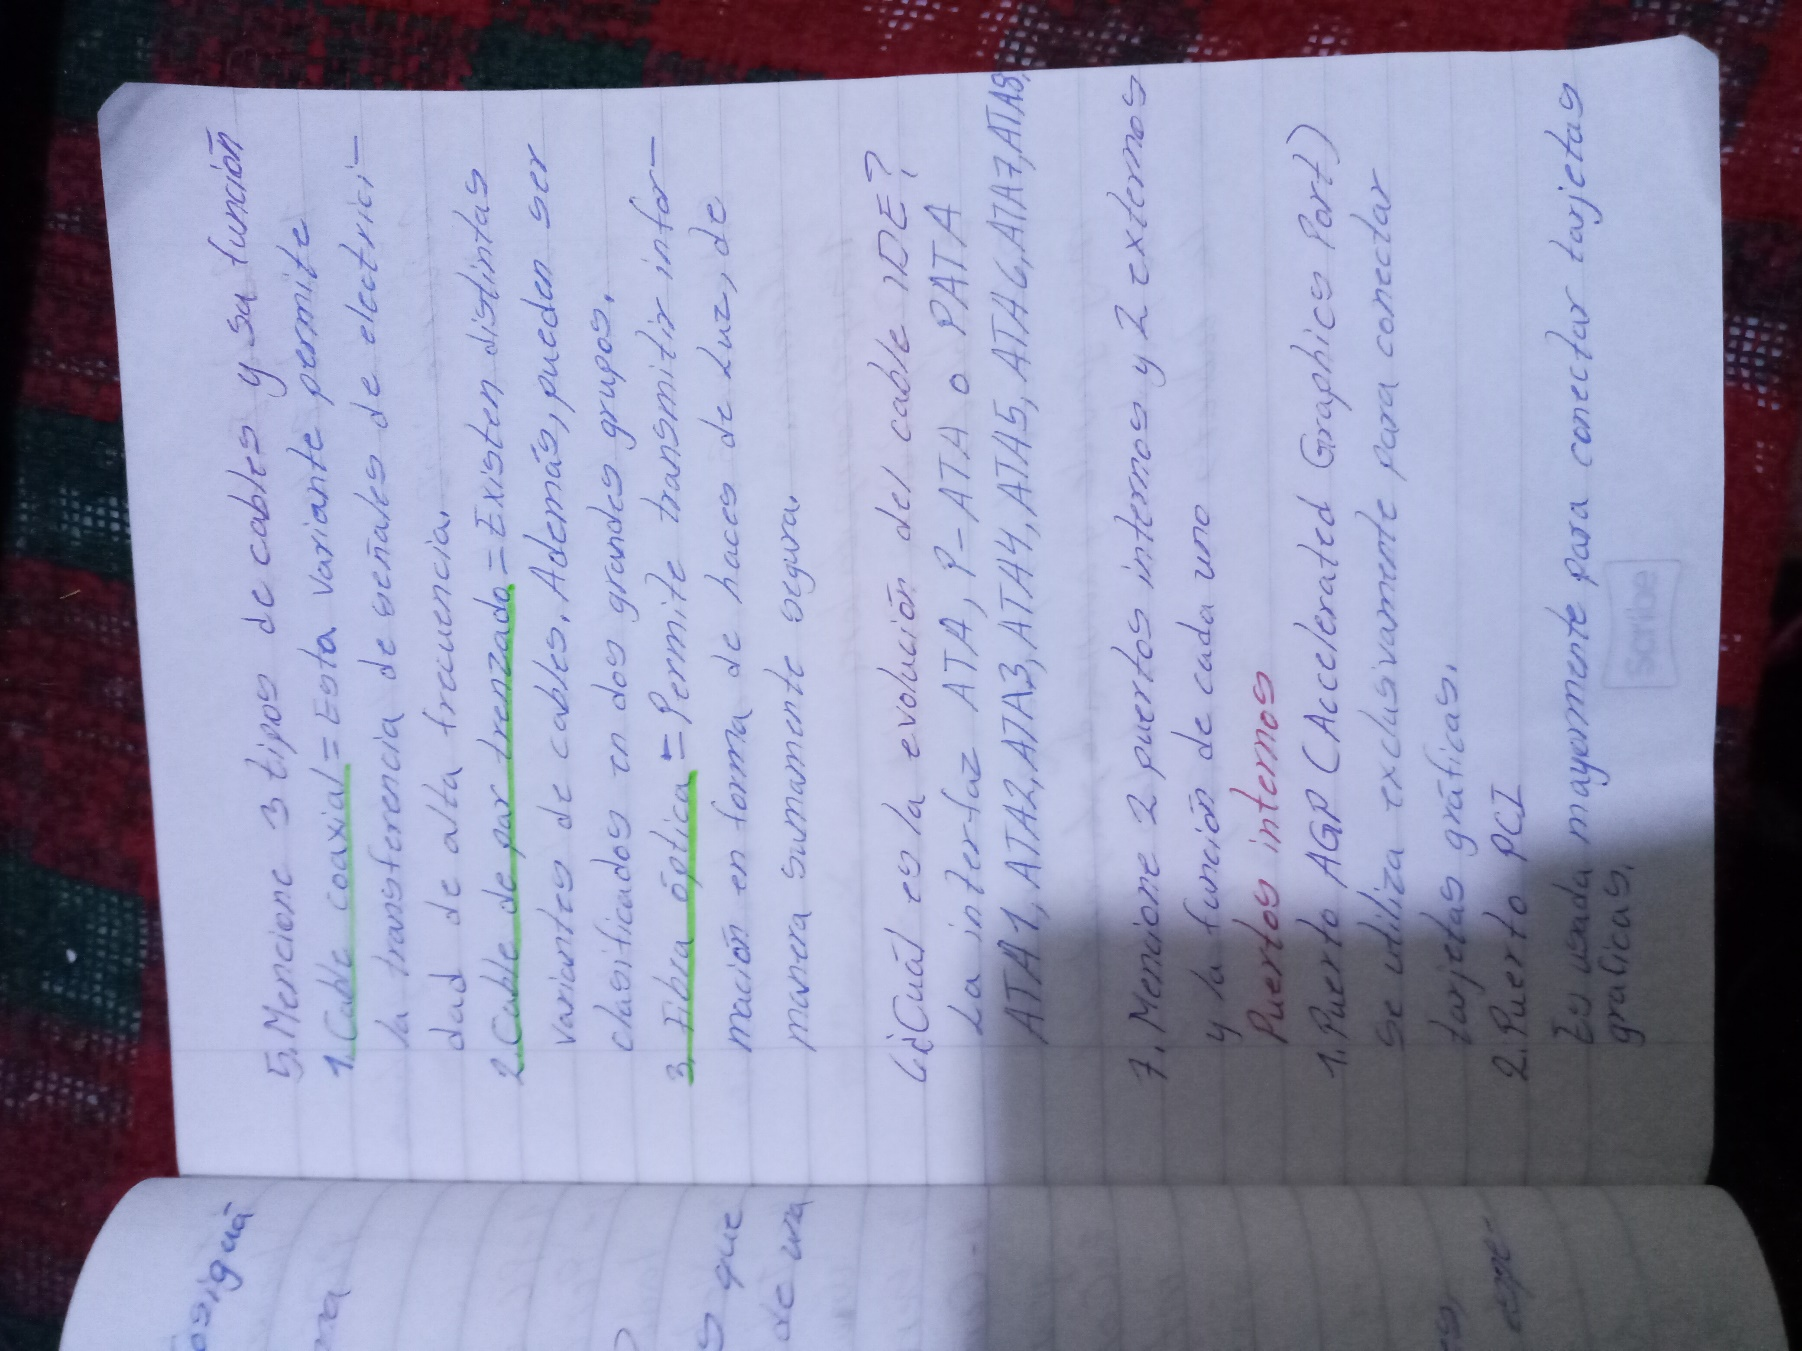 5. Mencione 3 tipos de cables y su función
1. Cable coaxial = Esta variante permite
la transferencia de señales de electrici-
dad de alta frecuencia.
2. Cable de par trenzado = Existen distintas
variantes de cables. Además, pueden ser
clasificados en dos grandes grupos.
3. Fibra óptica = Permite transmitir infor-
mación en forma de haces de luz, de
manera sumamente segura.
6. ¿Cuál es la evolución del cable IDE?
La interfaz ATA, P-ATA o PATA
ATA1, ATA2, ATA3, ATA4, ATA5, ATA6, ATA7, ATA8,
7. Mencione 2 puertos internos y 2 externos
y la función de cada uno
Puertos internos
1. Puerto AGP (Accelerated Graphics Port)
Se utiliza exclusivamente para conectar
tarjetas gráficas.
2. Puerto PCI
Es usada mayormente para conectar tarjetas
graficas.
Scribe
osigua
ra
s que
de una
es,